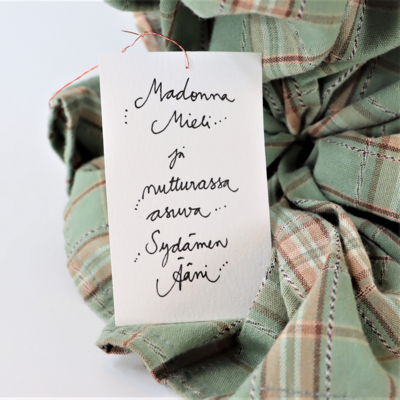 Madonna
Mieli
ja
nutturassa
asuva
Sydämen
Ääni